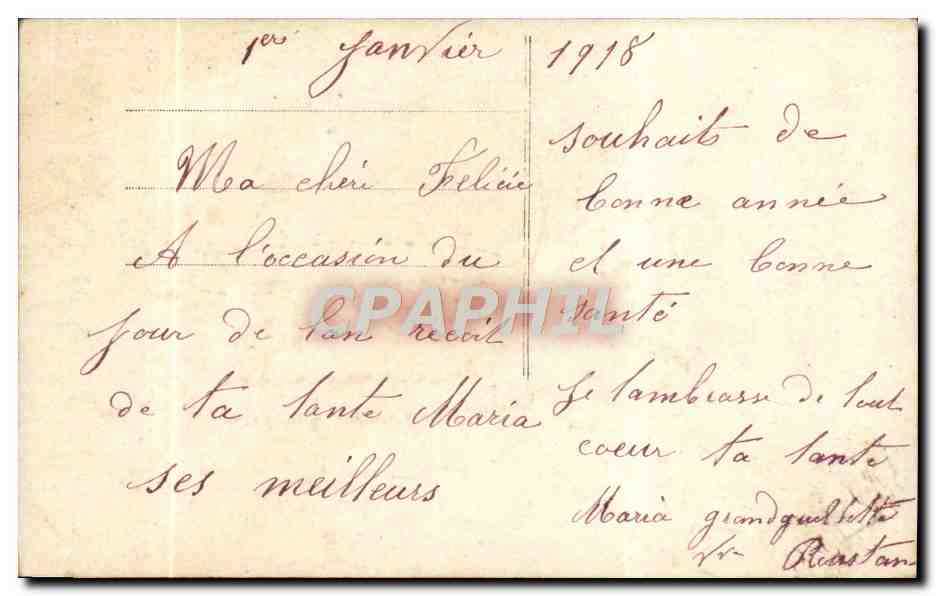 1ers Janvier 1918
Ma chéri Félicie
A l'occasion du
jour de lan recoit
de ta tante Maria
ses meilleurs
souhaits de
bonne année
et une bonne
santé
Je tambrasse de tout
coeur ta tante
Maria
Vve Roustan
CPAPHIL